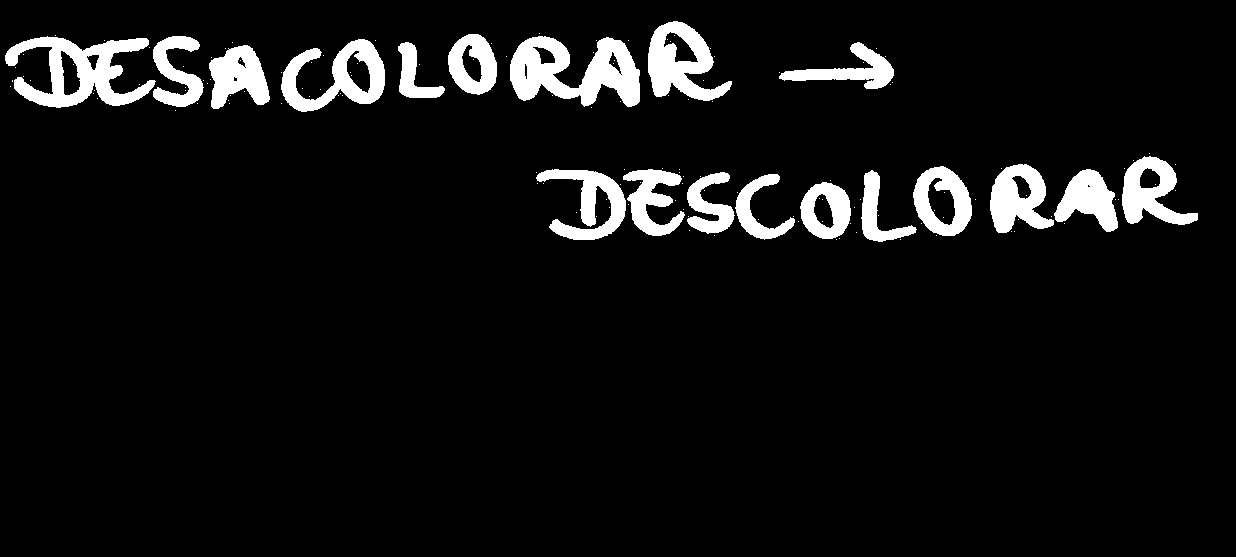 DESACOLORAR →
DESCOLORAR